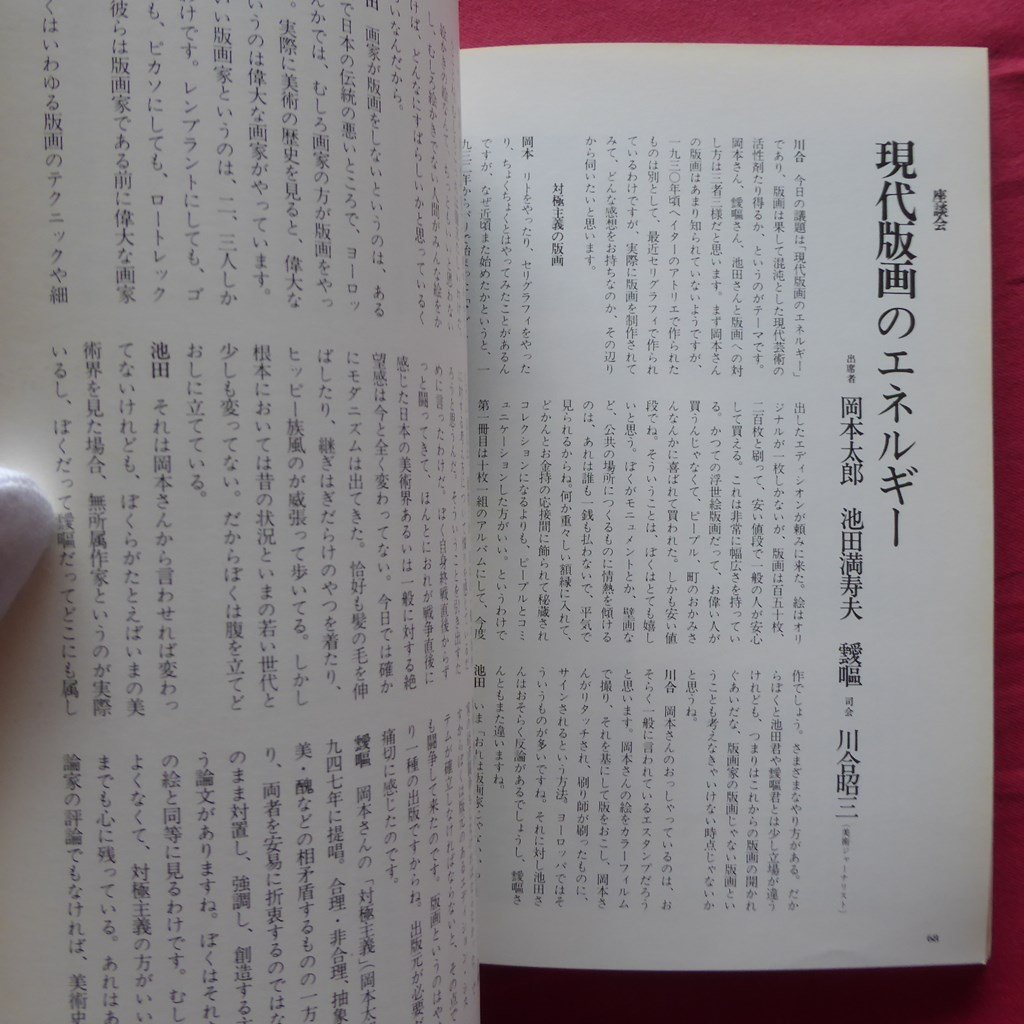 座談会
現代版画のエネルギー
出席者 岡本太郎 池田満寿夫 靉嘔 司会 川合昭三（美術ジャーナリスト）
川合 今日の議題は「現代版画のエネルギー」
であり、版画は果して混沌とした現代芸術の
活性剤たり得るか、というのがテーマです。
岡本さん、靉嘔さん、池田さんと版画への対
し方は三者三様だと思います。まず岡本さん
の版画はあまり知られていないようですが、
一九三〇年頃ヘイターのアトリエで作られた
ものは別として、最近セリグラフィで作られ
ているわけですが、実際に版画を制作されて
みて、どんな感想をお持ちなのか、その辺り
から伺いたいと思います。
対極主義の版画
岡本 リトをやったり、セリグラフィをやった
り、ちょくちょくとはやってみたことがあるん
ですが、なぜ近頃また始めたかというと、一
出したエディションが頼みに来た。絵はオリ
ジナルが一枚しかないが、版画は百五十枚、
二百枚と刷って、安い値段で一般の人が安心
して買える。これは非常に幅広さを持ってい
る。かつての浮世絵版画だって、お偉い人が
買うんじゃなくて、ピープル、町のおかみさ
んなんかに喜ばれて買われた。しかも安い値
段でね。そういうことは、ぼくはとても嬉し
いと思う。ぼくがモニュメントとか、壁画な
ど、公共の場所につくるものに情熱を傾ける
のは、あれは誰も一銭も払わないで、平気で
見られるからね。何か重々しい額縁に入れて、
どかんとお金持の応接間に飾られて秘蔵され
コレクションになるよりも、ピープルとコミ
ュニケーションした方がいい、というわけで
第一冊目は十枚一組のアルバムにして、今度
作でしょう。さまざまなやり方がある。だか
らぼくと池田君や靉嘔君とは少し立場が違う
けれども、つまりはこれからの版画の開かれ
ぐあいだな、版画家の版画じゃない版画とい
うことも考えなきゃいけない時点じゃないか
と思うね。
川合 岡本さんのおっしゃっているのは、お
そらく一般に言われているエスタンプだろう
と思います。岡本さんの絵をカラーフィルム
で撮り、それを基にして版をおこし、岡本さ
んがリタッチされ、刷り師が刷ったものに、
サインされるという方法。ヨーロッパではそ
ういうものが多いですね。それに対し池田さ
んはおそらく反論があるでしょうし、靉嘔さ
んともまた違いますね。
池田 いま「おれは版画家じゃない
68
いなんだから。
画家が版画をしないというのは、ある
で日本の伝統の悪いところで、ヨーロッ
んかでは、むしろ画家の方が版画をやっ
。実際に美術の歴史を見ると、偉大な
いうのは偉大な画家がやっています。
いい版画家というのは、二、三人しか
わけです。レンブラントにしても、ゴ
も、ピカソにしても、ロートレック
彼らは版画家である前に偉大な画家
くはいわゆる版画のテクニックや細
っと闘ってきて、ほんとにおれが戦争直後に
感じた日本の美術界あるいは一般に対する絶
望感は今と全く変わってない。今日では確か
にモダニズムは出てきた。恰好も髪の毛を伸
ばしたり、継ぎはぎだらけのやつを着たり、
ヒッピー族風のが威張って歩いてる。しかし
根本においては昔の状況といまの若い世代と
少しも変ってない。だからぼくは腹を立てど
おしに立てている。
池田 それは岡本さんから言わせれば変わっ
てないけれども、ぼくらがたとえばいまの美
術界を見た場合、無所属作家というのが実際
いるし、ぼくだって靉嘔だってどこにも属し
も闘争して来たのです。版画というのはや
り一種の出版ですからね、出版元が必要
痛切に感じたのです。
靉嘔 岡本さんの「対極主義」（岡本太
九四七年に提唱。合理・非合理、抽象
美・醜などの相矛盾するものの一方
り、両者を安易に折衷するのではな
のまま対置し、強調し、創造する
う論文がありますね。ぼくはそれ
の絵と同等に見るわけです。むし
よくなくて、対極主義の方がいい
までも心に残っている。あれはあ
論家の評論でもなければ、美術史